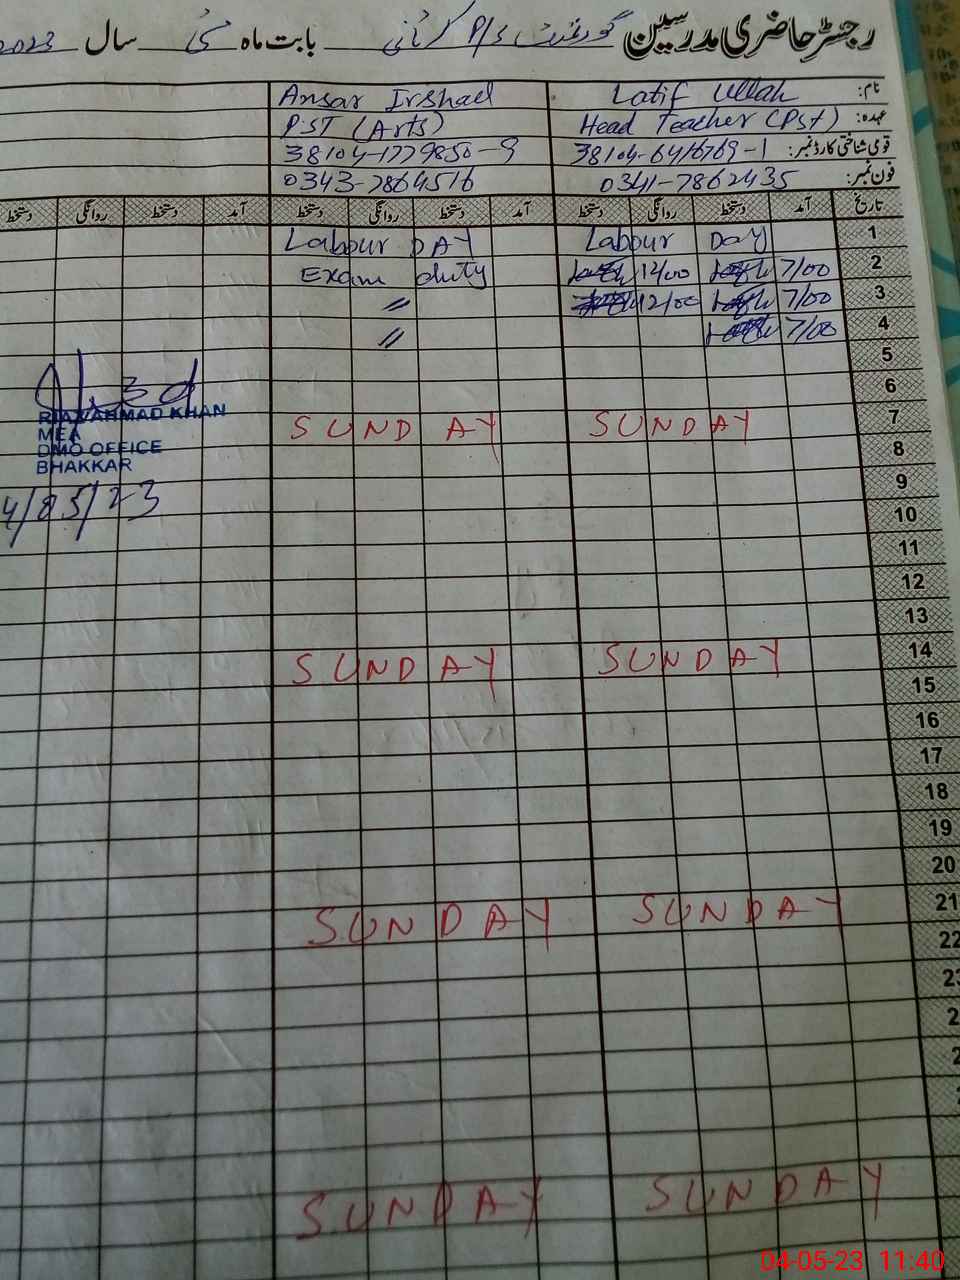 رجسٹر حاضری مدرسین گورنمنٹ P/S بابت ماہ مئی سال 2023
نام: Latif Ullah Ansar Irshad
عہدہ: Head Teacher (Pst) PST (Arts)
قومی شناختی کارڈ نمبر: 38104-6416769-1 38104-1779850-9
فون نمبر: 0341-7862435 0343-7864516
تاریخ آمد دستخط روانگی دستخط آمد دستخط روانگی دستخط آمد دستخط روانگی دستخط
1 Labour Day Labour DAY
2 7/00 12/00 Exam duty
3 7/00 12/00 〃
4 7/00 〃
5
6
7 SUNDAY SUNDAY
8
9
10
11
12
13
14 SUNDAY SUNDAY
15
16
17
18
19
20
21 SUNDAY SUNDAY
22
SUNDAY SUNDAY
RIAZ AHMAD KHAN
MEA
DMO OFFICE
BHAKKAR
4/05/23
04-05-23 11:40